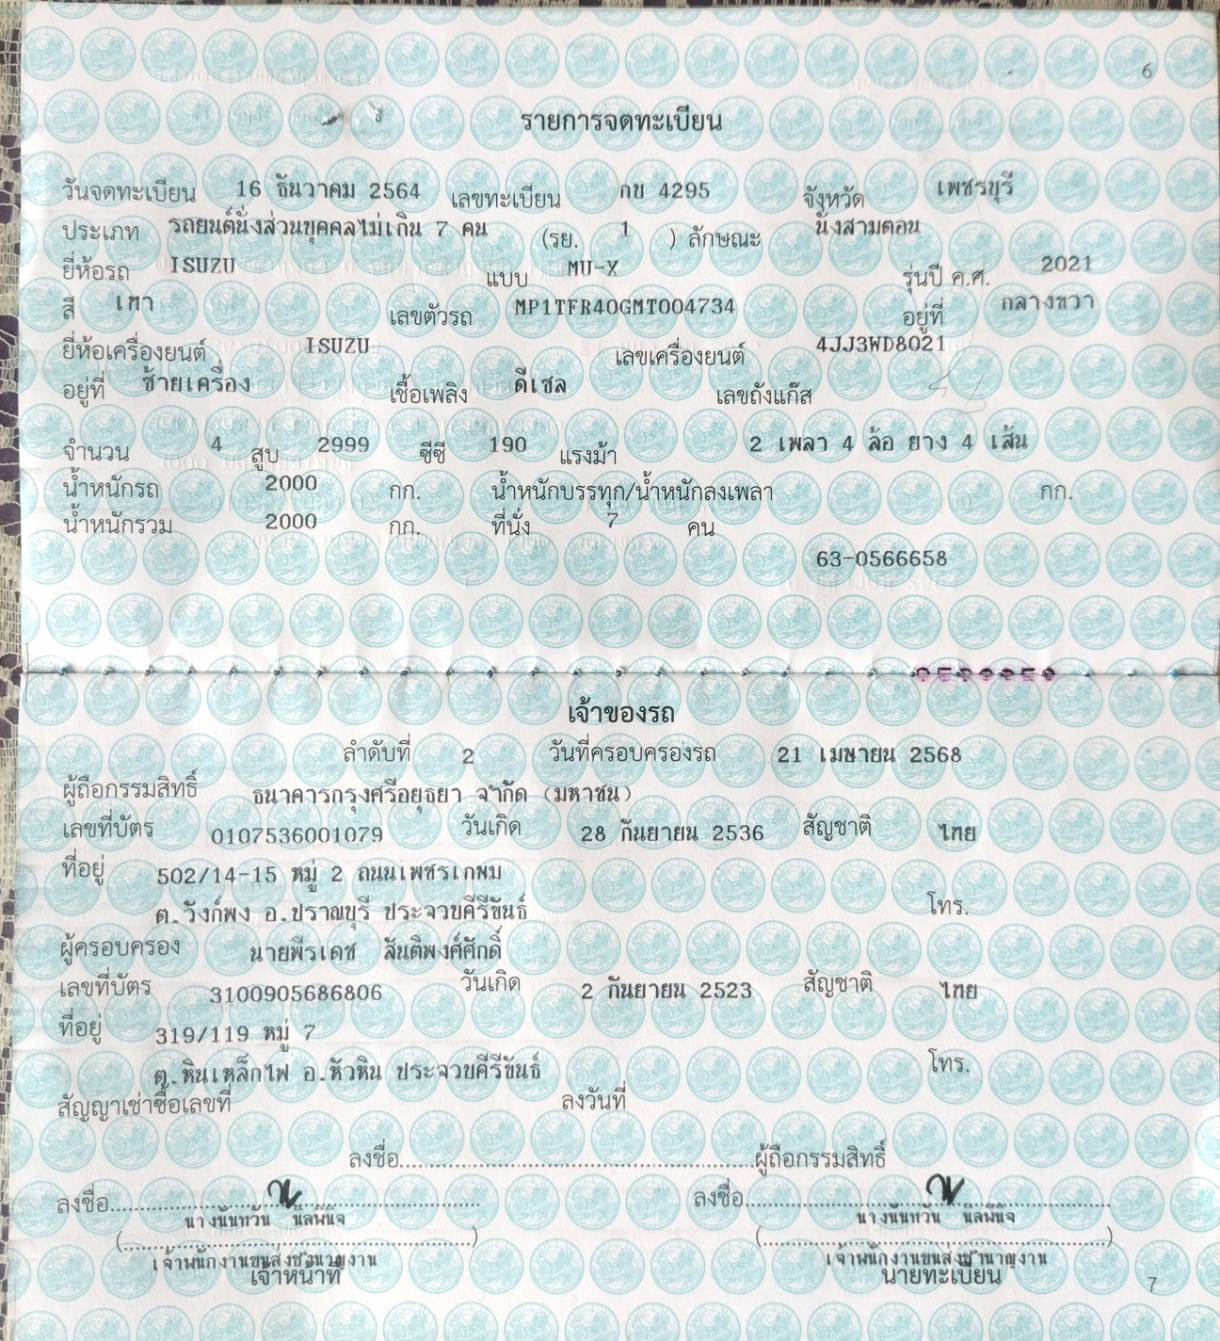 6
รายการจดทะเบียน
วันจดทะเบียน 16 ธันวาคม 2564 เลขทะเบียน กข 4295 จังหวัด เพชรบุรี
ประเภท รถยนต์นั่งส่วนบุคคลไม่เกิน 7 คน (รย. 1 ) ลักษณะ นั่งสามตอน
ยี่ห้อรถ ISUZU แบบ MU-X รุ่นปี ค.ศ. 2021
สี เทา เลขตัวรถ MP1TFR40GMT004734 อยู่ที่ กลางขวา
ยี่ห้อเครื่องยนต์ ISUZU เลขเครื่องยนต์ 4JJ3WD8021
อยู่ที่ ซ้ายเครื่อง เชื้อเพลิง ดีเซล เลขถังแก๊ส
จำนวน 4 สูบ 2999 ซีซี 190 แรงม้า 2 เพลา 4 ล้อ ยาง 4 เส้น
น้ำหนักรถ 2000 กก. น้ำหนักบรรทุก/น้ำหนักลงเพลา กก.
น้ำหนักรวม 2000 กก. ที่นั่ง 7 คน
63-0566658
เจ้าของรถ
ลำดับที่ 2 วันที่ครอบครองรถ 21 เมษายน 2568
ผู้ถือกรรมสิทธิ์ ธนาคารกรุงศรีอยุธยา จำกัด (มหาชน)
เลขที่บัตร 0107536001079 วันเกิด 28 กันยายน 2536 สัญชาติ ไทย
ที่อยู่ 502/14-15 หมู่ 2 ถนนเพชรเกษม
ต.วังก์พง อ.ปราณบุรี ประจวบคีรีขันธ์ โทร.
ผู้ครอบครอง นายพีรเดช สันติพงศ์ศักดิ์
เลขที่บัตร 3100905686806 วันเกิด 2 กันยายน 2523 สัญชาติ ไทย
ที่อยู่ 319/119 หมู่ 7
ต.หินเหล็กไฟ อ.หัวหิน ประจวบคีรีขันธ์ โทร.
สัญญาเช่าซื้อเลขที่ ลงวันที่
ลงชื่อ....................ผู้ถือกรรมสิทธิ์
ลงชื่อ.................... ลงชื่อ....................
นางนันทวัน นิลพินิจ นางนันทวัน นิลพินิจ
(....................) (....................)
เจ้าพนักงานขนส่งชำนาญงาน เจ้าพนักงานขนส่งชำนาญงาน
เจ้าหน้าที่ นายทะเบียน 7